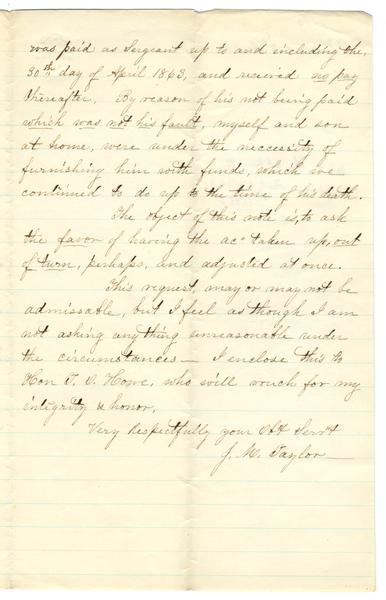 was paid as Sergeant up to and including the
30th day of April 1863, and received no pay
thereafter. By reason of his not being paid
which was not his fault, myself and son
at home, were under the neccesity of
furnishing him with funds, which we
continued to do up to the time of his death.
The object of this note is, to ask
the favor of having the acc taken up, out
of turn, perhaps, and adjusted at once.
This request, may or may not be
admissable, but I feel as though I am
not asking anything unreasonable under
the circumstances — I enclose this to
Hon T. O. Howe, who will vouch for my
integrity & honor.
Very Respectfully your Obt Servt
J. M. Taylor